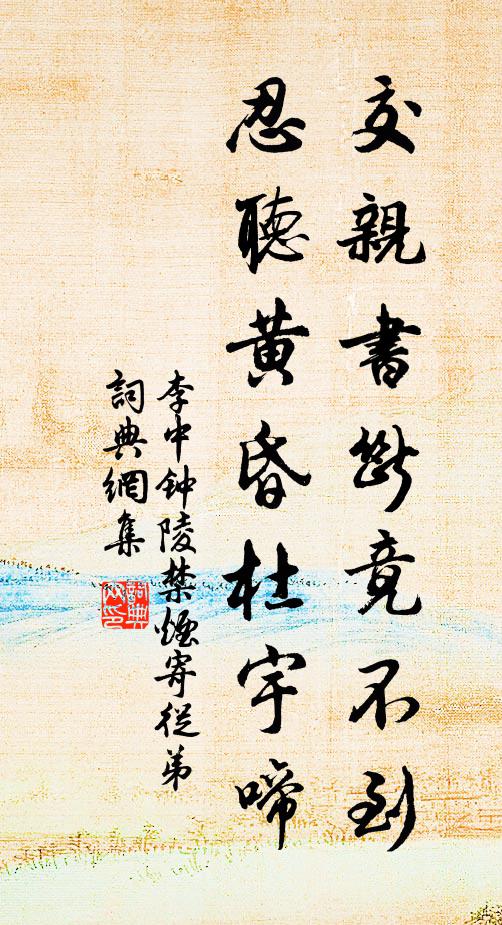 交親書斷竟不到
忍聽黄昏杜宇啼
李中钟陵禁煙寄從弟
詞典網集